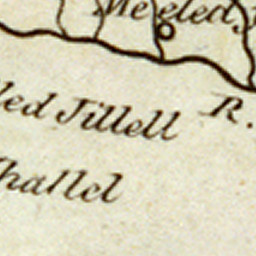 Meeled
led Jillell
R.
hallel